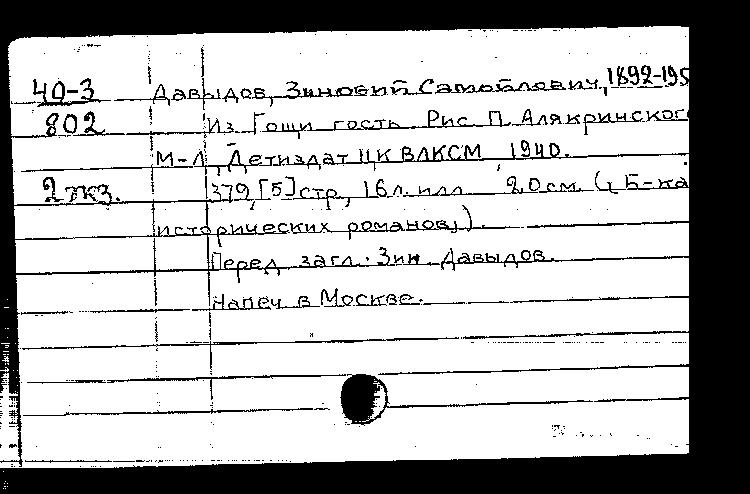 40-3 Давыдов, Зиновий Самойлович, 1892-195
802 Из Гощи гость Рис П. Алякринского
М-Л, Детиздат ЦК ВЛКСМ, 1940.
2 экз. 379, [5] стр, 16 л. илл 20 см. („Б-ка
исторических романов„).
Перед загл. Зин. Давыдов.
Напеч в Москве.